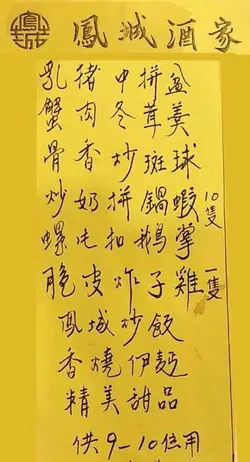 鳳城酒家
乳豬中拼盆
蟹肉冬茸羹
骨香炒斑球
炒奶拼鍋蝦 10隻
螺吨扣鵝掌
脆皮炸子雞 一隻
鳳城炒飯
香燒伊麵
精美甜品
供9-10位用